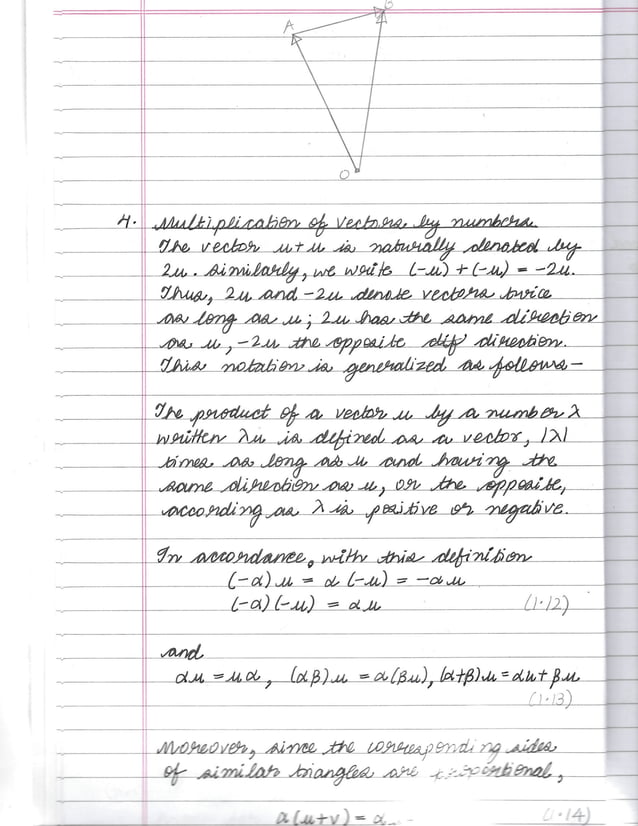 A B
O
4. Multiplication of vectors by numbers.
The vector u+u is naturally denoted by
2u. Similarly, we write (-u) + (-u) = -2u.
Thus, 2u and -2u denote vectors twice
as long as u; 2u has the same direction
as u, -2u the opposite dif direction.
This notation is generalized as follows-
The product of a vector u by a number λ
written λu is defined as a vector, |λ|
times as long as u and having the
same direction as u, or the opposite,
according as λ is positive or negative.
In accordance, with this definition
(-α)u = α(-u) = -αu
(-α)(-u) = αu (1.12)
and
αu = uα, (αβ)u = α(βu), (α+β)u = αu + βu
(1.13)
Moreover, since the corresponding sides
of similar triangles are proportional,
α(u+v) = α (1.14)